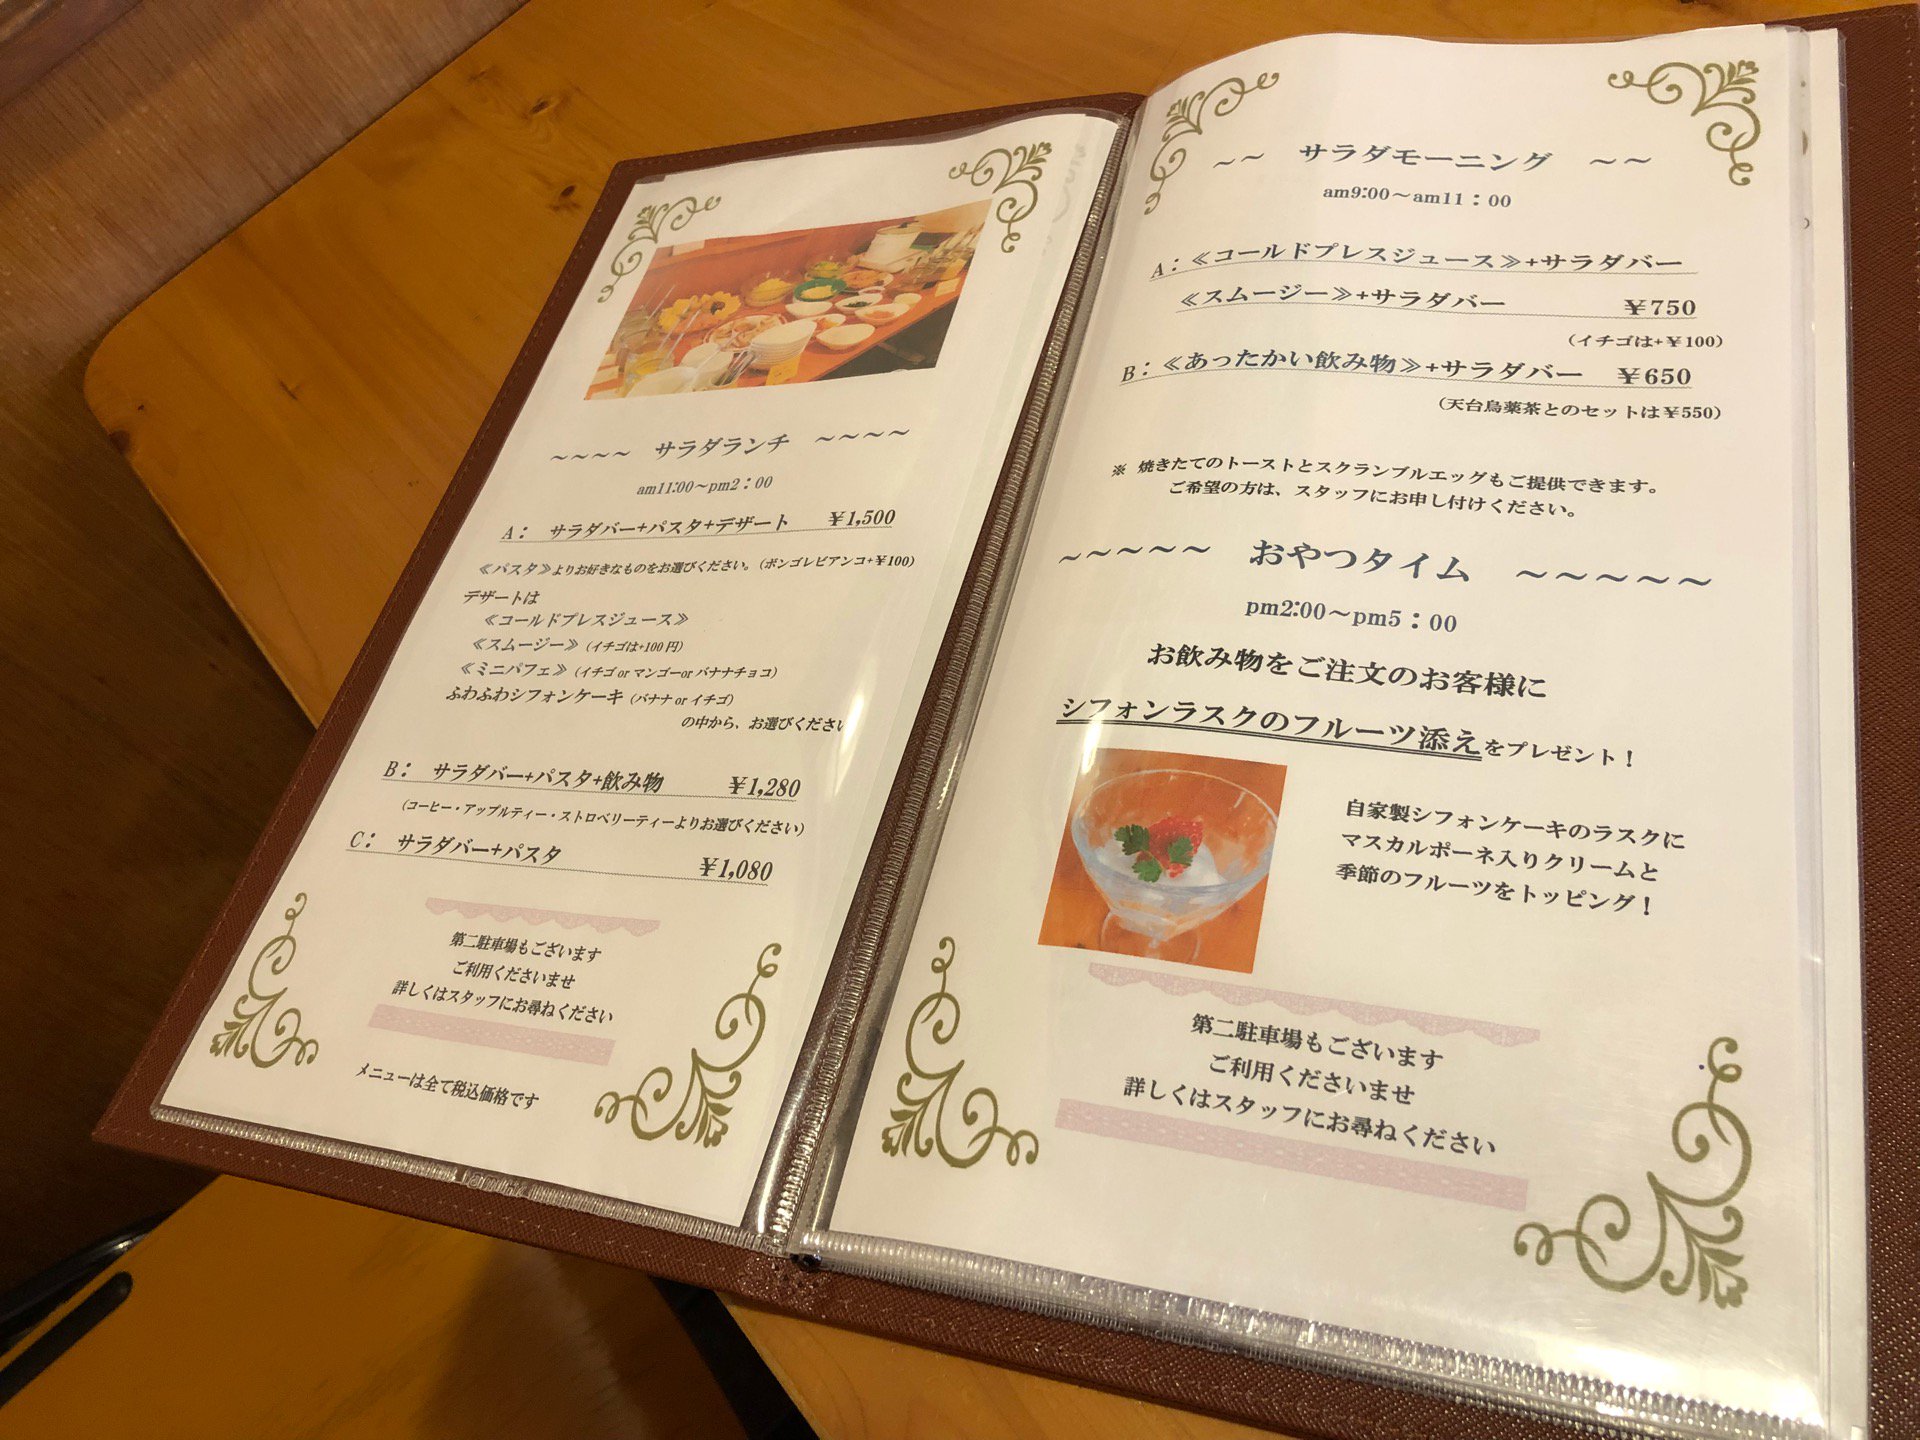 ～～～～　サラダランチ　～～～～
am11:00～pm2：00
A：　サラダバー+パスタ+デザート　￥1,500
≪パスタ≫よりお好きなものをお選びください。（ボンゴレビアンコ+￥100）
デザートは
≪コールドプレスジュース≫
≪スムージー≫（イチゴは+100円）
≪ミニパフェ≫（イチゴ or マンゴーor バナナチョコ）
ふわふわシフォンケーキ（バナナ or イチゴ）
の中から、お選びください
B：　サラダバー+パスタ+飲み物　￥1,280
（コーヒー・アップルティー・ストロベリーティーよりお選びください）
C：　サラダバー+パスタ　￥1,080
第二駐車場もございます
ご利用くださいませ
詳しくはスタッフにお尋ねください
メニューは全て税込価格です
～～　サラダモーニング　～～
am9:00～am11：00
A：≪コールドプレスジュース≫+サラダバー
≪スムージー≫+サラダバー　￥750
（イチゴは+￥100）
B：≪あったかい飲み物≫+サラダバー　￥650
（天台烏薬茶とのセットは￥550）
※ 焼きたてのトーストとスクランブルエッグもご提供できます。
ご希望の方は、スタッフにお申し付けください。
～～～～～　おやつタイム　～～～～～
pm2:00～pm5：00
お飲み物をご注文のお客様に
シフォンラスクのフルーツ添えをプレゼント！
自家製シフォンケーキのラスクに
マスカルポーネ入りクリームと
季節のフルーツをトッピング！
第二駐車場もございます
ご利用くださいませ
詳しくはスタッフにお尋ねください